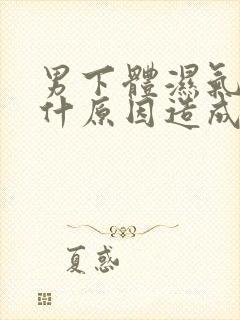 男下體濕氣
什原因造成
夏惑